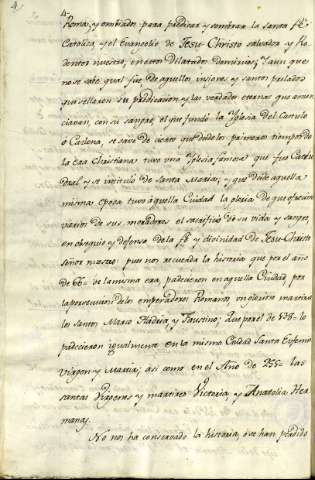 4
4-
Roma, y embiados para predicar y sembrar la santa fé
Catolica, y el Evangelio de Jesu-Christo salvador y Re
dentor nuestro, en estos dilatados dominios; Y aun que
no se sabe qual fue de aquellos insignes, y santos prelados
que sellaron su predicacion, y las verdades eternas que anun
ciaron, con su sangre, el que fundo la Yglesia del Castulo
o Cazlona, se save de cierto que desde los primeros tiempos de
la era Christiana tuvo una Yglesia famosa que fue Cathe
dral y se intitulo de Santa Maria; y que desde aquella
misma epoca tuvo aquella Ciudad la gloria de que ofrecieran
varios de sus moradores el sacrificio de su vida y sangre,
en obsequio y defensa de la fé y divinidad de Jesu-Christo
señor nuestro: pues nos recuerda la historia que por el año
de 66= de la misma era, padecieron en aquella Ciudad por
la persecucion de los emperadores Romanos, un glorioso martirio
los santos Mario Hadria, y Faustino; que por el de 138= lo
padecieron igualmente en la misma Ciudad Santa Eufemia
virgen y Martir; asi como en el Año de 255= las
santas Virgenes y martires Victoria, y Anatolia Her
manas.
No nos ha conservado la historia, o se han perdido